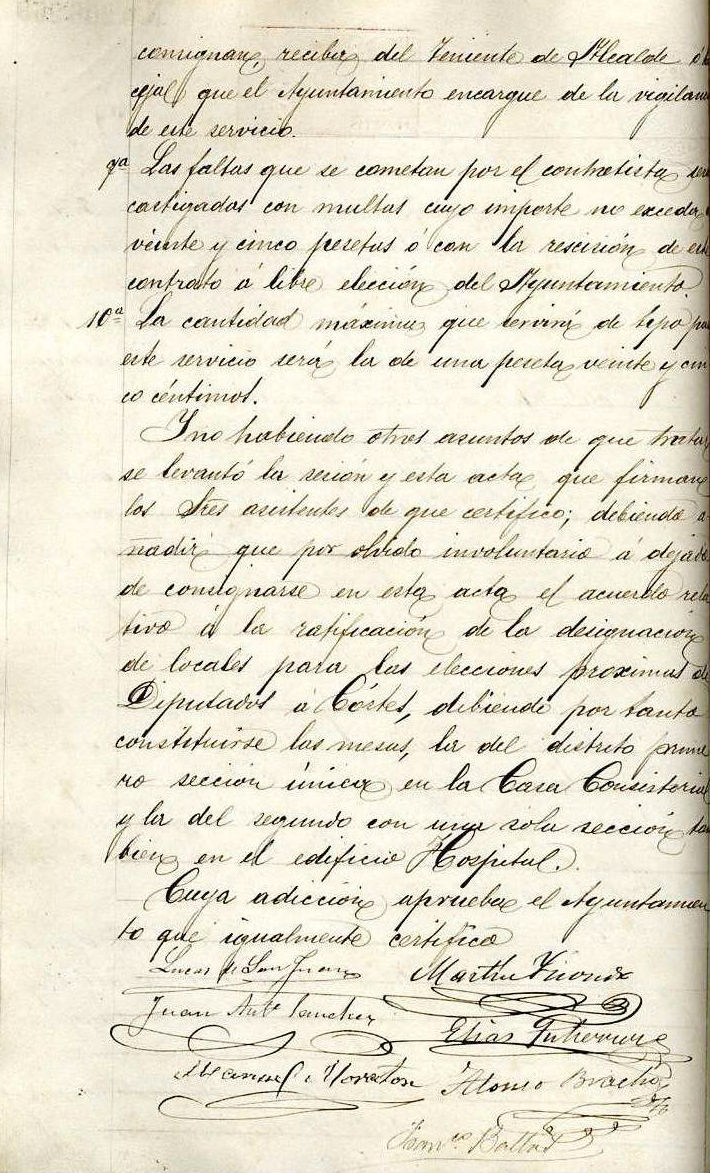 consignan, recibir del Teniente de Alcalde ó
cejal que el Ayuntamiento encargue de la vigilan
de este servicio.
9ª Las faltas que se cometan por el contratista ser
castigadas con multas cuyo importe no exceda
veinte y cinco pesetas ó con la rescisión de este
contrato á libre elección del Ayuntamiento.
10ª La cantidad máxima que servirá de tipo pa
este servicio será la de una peseta veinte y cin
co céntimos.
Y no habiendo otros asuntos de que tratar
se levantó la sesión y esta acta que firman
los Sres asistentes de que certifico; debiendo a
ñadir que por olvido involuntario á dejado
de consignarse en esta acta el acuerdo rela
tivo á la ratificación de la designación
de locales para las elecciones proximas de
Diputados á Córtes, debiendo por tanto
constituirse las mesas, la del distrito prime
ro sección única en la Casa Consistorial
y la del segundo con una sola sección tam
bien en el edificio Hospital.
Cuya adicción aprueba el Ayuntamien
to que igualmente certifico
Lucas de San Juan Martin
Juan Antº Sanchez
Elias Gutierrez
Manuel Alonso
Franco